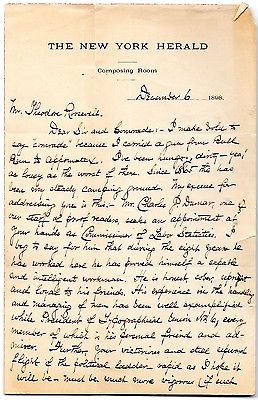 THE NEW YORK HERALD
Composing Room
December 6 1898.
Mr. Theodore Roosevelt.
Dear Sir and Comrade:- I make bold to
say "comrade" because I carried a gun from Bull
Run to Appomattox. I've been hungry, dirty - yes,
as lousy as the worst of them. Since 1865 this has
been my steady camping ground. My excuse for
addressing you is this:- Mr. Charles J. Dumar, one of
our staff of proof readers, seeks an appointment at
your hands as Commissioner of Labor Statistics. I
beg to say for him that during the eight years he
has worked here he has proved himself a capable
and intelligent workman. He is honest, sober, upright
and loyal to his friends. His experience in the handling
and managing of men has been well exemplified
while President of Typographical Union No. 6, every
member of which is his personal friend and ad-
mirer. Further, your victorious and still upward
flight of the political ladder rapid as I hope it
will be - must be much more vigorous (if such